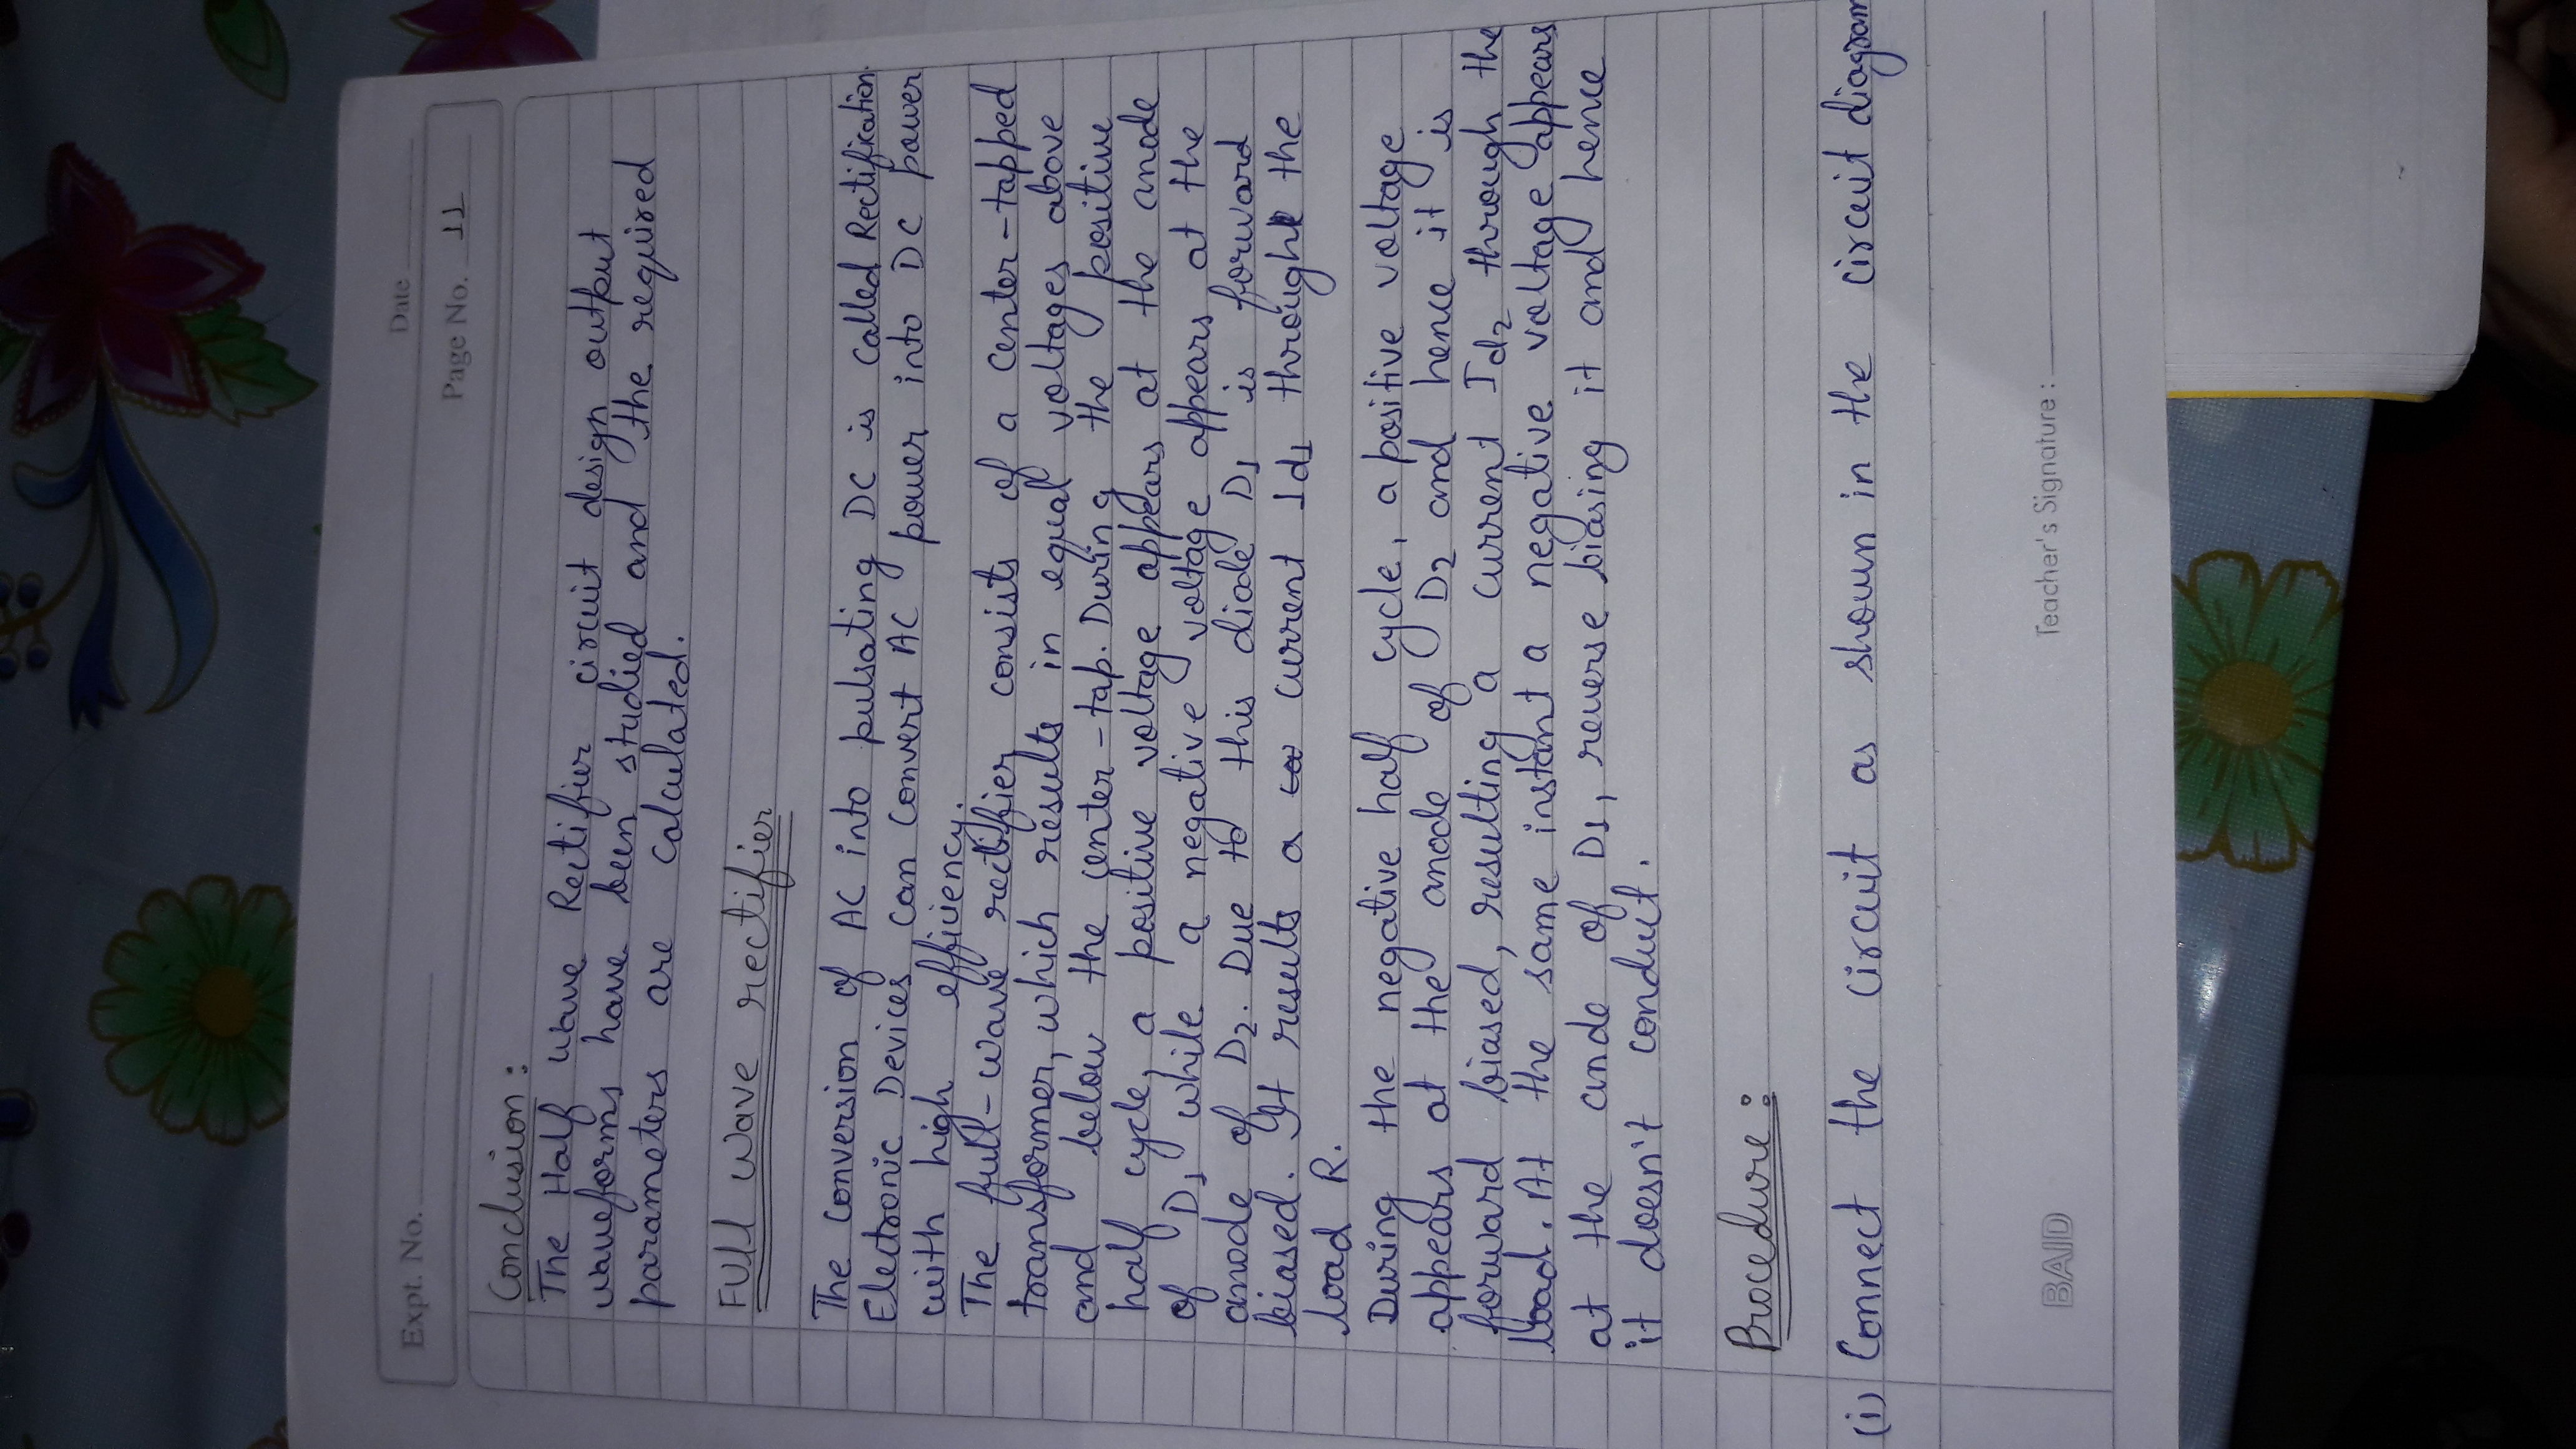 Expt. No.
Date
Page No. 11
Conclusion :
The Half wave Rectifier circuit design output
waveforms have been studied and the required
parameters are calculated.
Full wave rectifier
The Conversion of AC into pulsating DC is called Rectification.
Electronic Devices can Convert AC power into DC power
with high efficiency.
The full-wave rectifier consists of a center-tapped
transformer, which results in equal voltages above
and below the center-tap. During the positive
half cycle, a positive voltage appears at the anode
of D1 while a negative voltage appears at the
anode of D2. Due to this diode D1 is forward
biased. It results a current Id1 through the
load R.
During the negative half cycle, a positive voltage
appears at the anode of D2 and hence it is
forward biased, resulting a current Id2 through the
load. At the same instant a negative voltage appears
at the ande of D1, reverse biasing it and hence
it doesn't conduct.
Procedure :
(i) Connect the circuit as shown in the circuit diagram
BAID
Teacher's Signature :